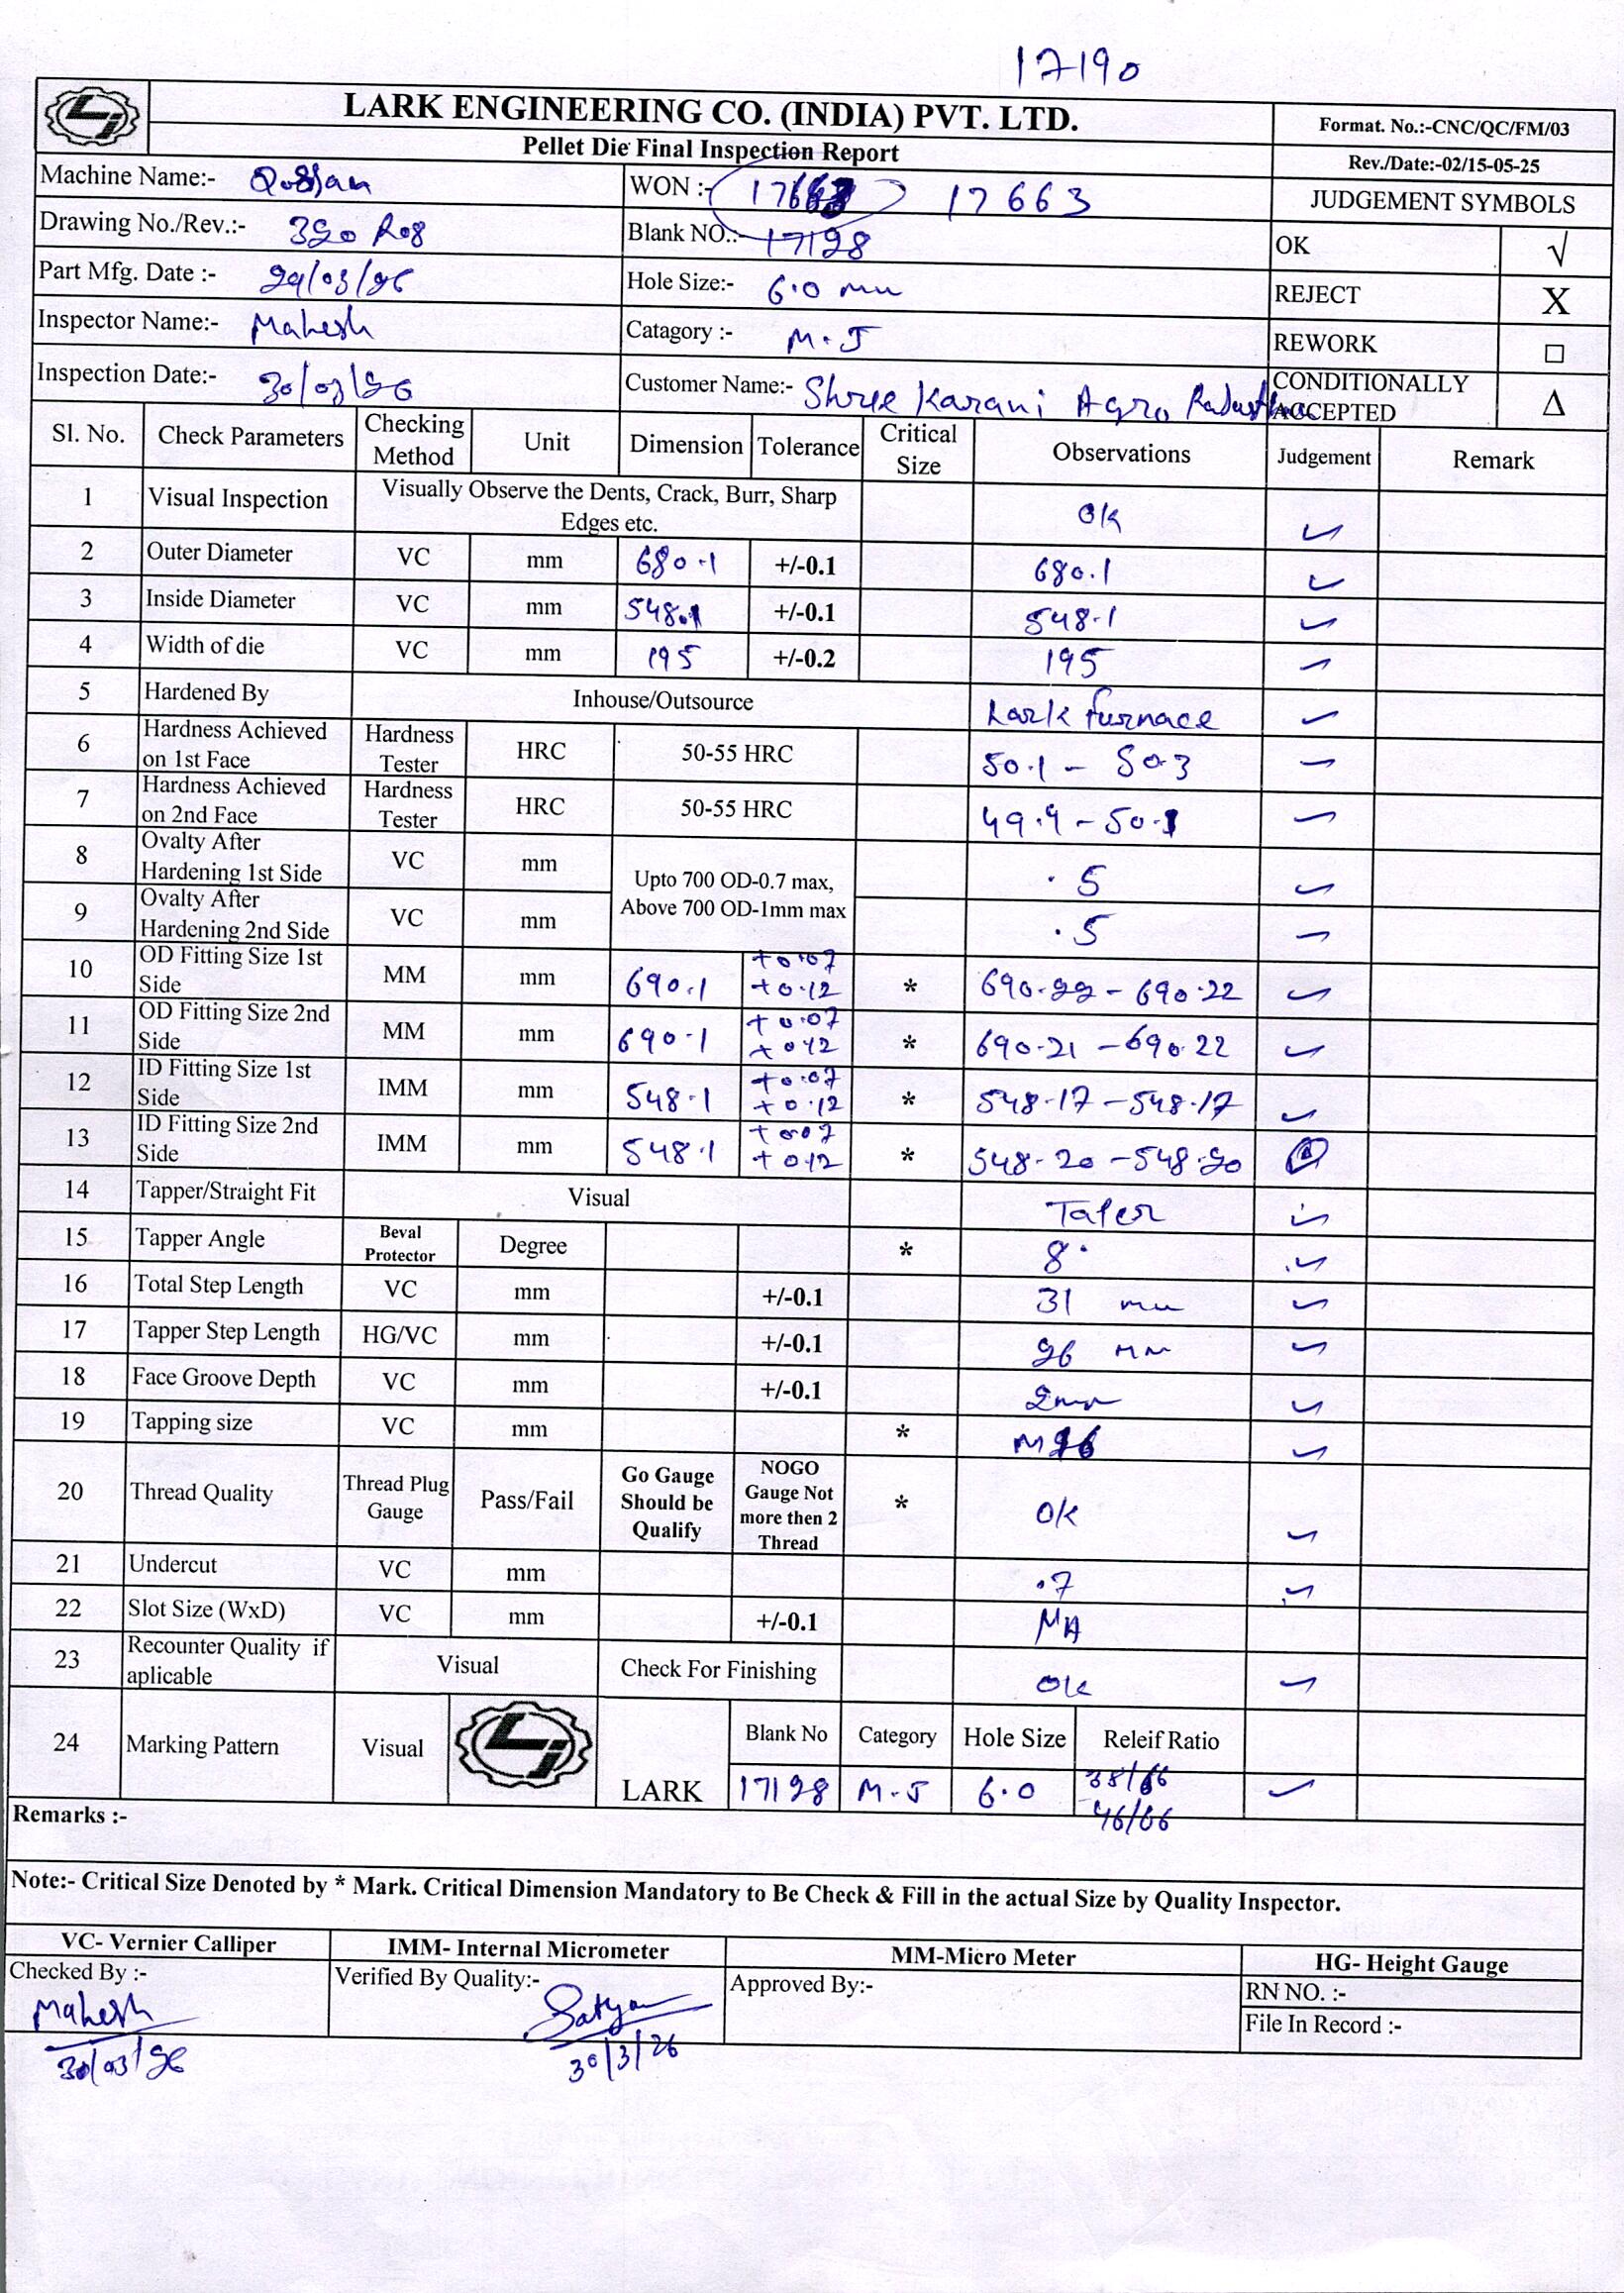 17190
LARK ENGINEERING CO. (INDIA) PVT. LTD.
Pellet Die Final Inspection Report
Format. No.:-CNC/QC/FM/03
Rev./Date:-02/15-05-25
Machine Name:-
WON :- 17663
JUDGEMENT SYMBOLS
Drawing No./Rev.:- 320 R08
Blank NO.:- 17128
OK √
Part Mfg. Date :- 29/03/26
Hole Size:- 6.0 mm
REJECT X
Inspector Name:- Mahesh
Catagory :- M.J
REWORK □
Inspection Date:- 30/03/26
Customer Name:- Shree Karani Agro
CONDITIONALLY ACCEPTED Δ
Sl. No. Check Parameters Checking Method Unit Dimension Tolerance Critical Size Observations Judgement Remark
1 Visual Inspection Visually Observe the Dents, Crack, Burr, Sharp Edges etc. OK ✓
2 Outer Diameter VC mm 680.1 +/-0.1 680.1 ✓
3 Inside Diameter VC mm 548.1 +/-0.1 548.1 ✓
4 Width of die VC mm 195 +/-0.2 195 ✓
5 Hardened By Inhouse/Outsource Lark furnace ✓
6 Hardness Achieved on 1st Face Hardness Tester HRC 50-55 HRC 50.1 - 50.3 ✓
7 Hardness Achieved on 2nd Face Hardness Tester HRC 50-55 HRC 49.9 - 50.1 ✓
8 Ovalty After Hardening 1st Side VC mm Upto 700 OD-0.7 max, Above 700 OD-1mm max .5 ✓
9 Ovalty After Hardening 2nd Side VC mm .5 ✓
10 OD Fitting Size 1st Side MM mm 690.1 +0.07 +0.12 * 690.22 - 690.22 ✓
11 OD Fitting Size 2nd Side MM mm 690.1 +0.07 +0.12 * 690.21 - 690.22 ✓
12 ID Fitting Size 1st Side IMM mm 548.1 +0.07 +0.12 * 548.17 - 548.17 ✓
13 ID Fitting Size 2nd Side IMM mm 548.1 +0.07 +0.12 * 548.20 - 548.20
14 Tapper/Straight Fit Visual Taper ✓
15 Tapper Angle Beval Protector Degree * 8° ✓
16 Total Step Length VC mm +/-0.1 31 mm ✓
17 Tapper Step Length HG/VC mm +/-0.1 26 mm ✓
18 Face Groove Depth VC mm +/-0.1 2mm ✓
19 Tapping size VC mm * M16 ✓
20 Thread Quality Thread Plug Gauge Pass/Fail Go Gauge Should be Qualify NOGO Gauge Not more then 2 Thread * OK ✓
21 Undercut VC mm .7 ✓
22 Slot Size (WxD) VC mm +/-0.1 NA
23 Recounter Quality if aplicable Visual Check For Finishing OK ✓
24 Marking Pattern Visual LARK Blank No Category Hole Size Releif Ratio
17128 M.J 6.0 38/66 ✓
46/66
Remarks :-
Note:- Critical Size Denoted by * Mark. Critical Dimension Mandatory to Be Check & Fill in the actual Size by Quality Inspector.
VC- Vernier Calliper IMM- Internal Micrometer MM-Micro Meter HG- Height Gauge
Checked By :- Verified By Quality:- Approved By:- RN NO. :-
Mahesh Satya File In Record :-
30/03/26 30/3/26